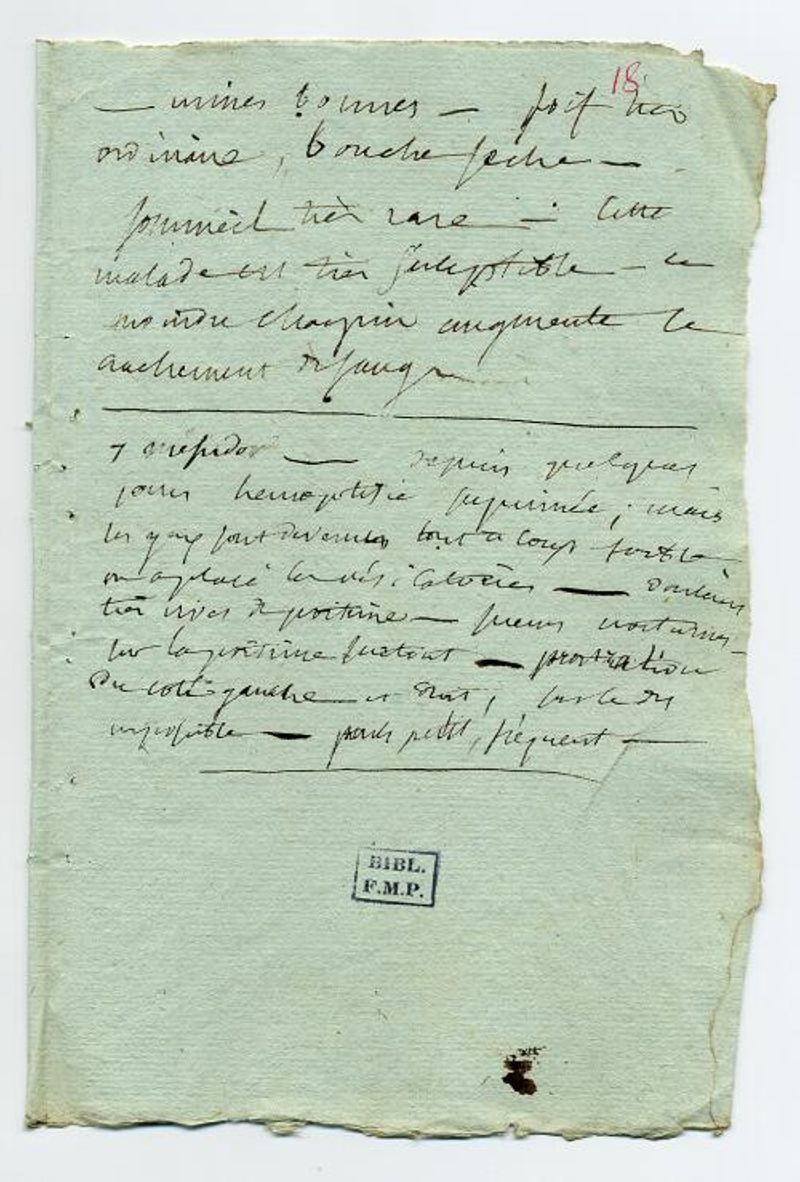 18
— urines bonnes — soif très
ordinaire, bouche seche —
sommeil très rare — cette
malade est très suseptible — le
moindre chagrin augmente le
crachement de sang
7 messidor — depuis quelques
jours hemoptisie suprimée ; mais
les yeux sont devenus tout a coup foible
on a placé les vésicatoires — douleurs
très vives de poitrine — sueurs nocturnes
sur la poitrine surtout — prostration
du coté gauche et droit, sur le dos
impossible — pouls petit, fréquent —
BIBL.
F.M.P.